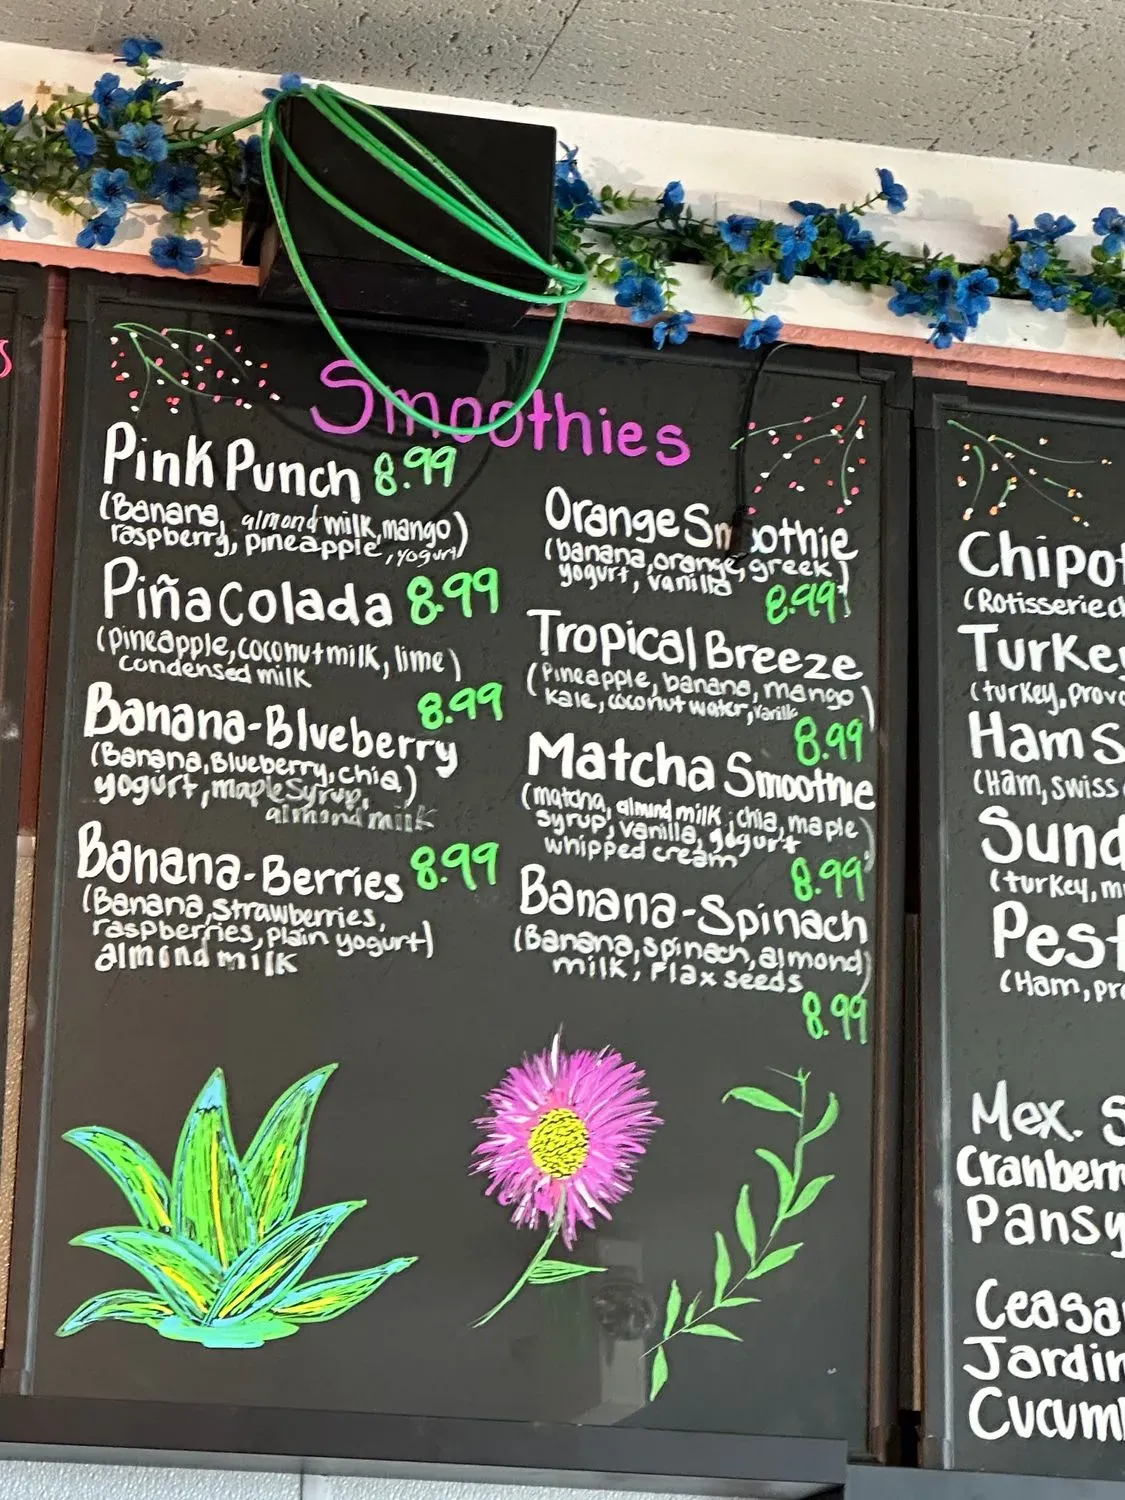 s
Smoothies
Pink Punch 8.99
(Banana, almond milk, mango)
raspberry, pineapple, yogurt)
Piña Colada 8.99
(pineapple, coconut milk, lime)
condensed milk
8.99
Banana-Blueberry
(Banana, Blueberry, chia)
yogurt, maple syrup,
almond milk
Banana-Berries 8.99
(Banana, strawberries,
raspberries, plain yogurt)
almond milk
Orange Smoothie
(banana, orange, greek)
yogurt, vanilla
8.99
Tropical Breeze
(Pineapple, banana, mango)
kale, coconut water, vanilla
8.99
Matcha Smoothie
(matcha, almond milk, chia, maple)
syrup, vanilla, yogurt
whipped cream
8.99
Banana-Spinach
(Banana, spinach, almond)
milk, Flax seeds
8.99
Chipot
(Rotisserie c
Turkey
(turkey, prov
Ham S
(Ham, swiss
Sund
(turkey, m
Pest
(Ham, pr
Mex. S
Cranberr
Pansy
Ceasa
Jardin
Cucum